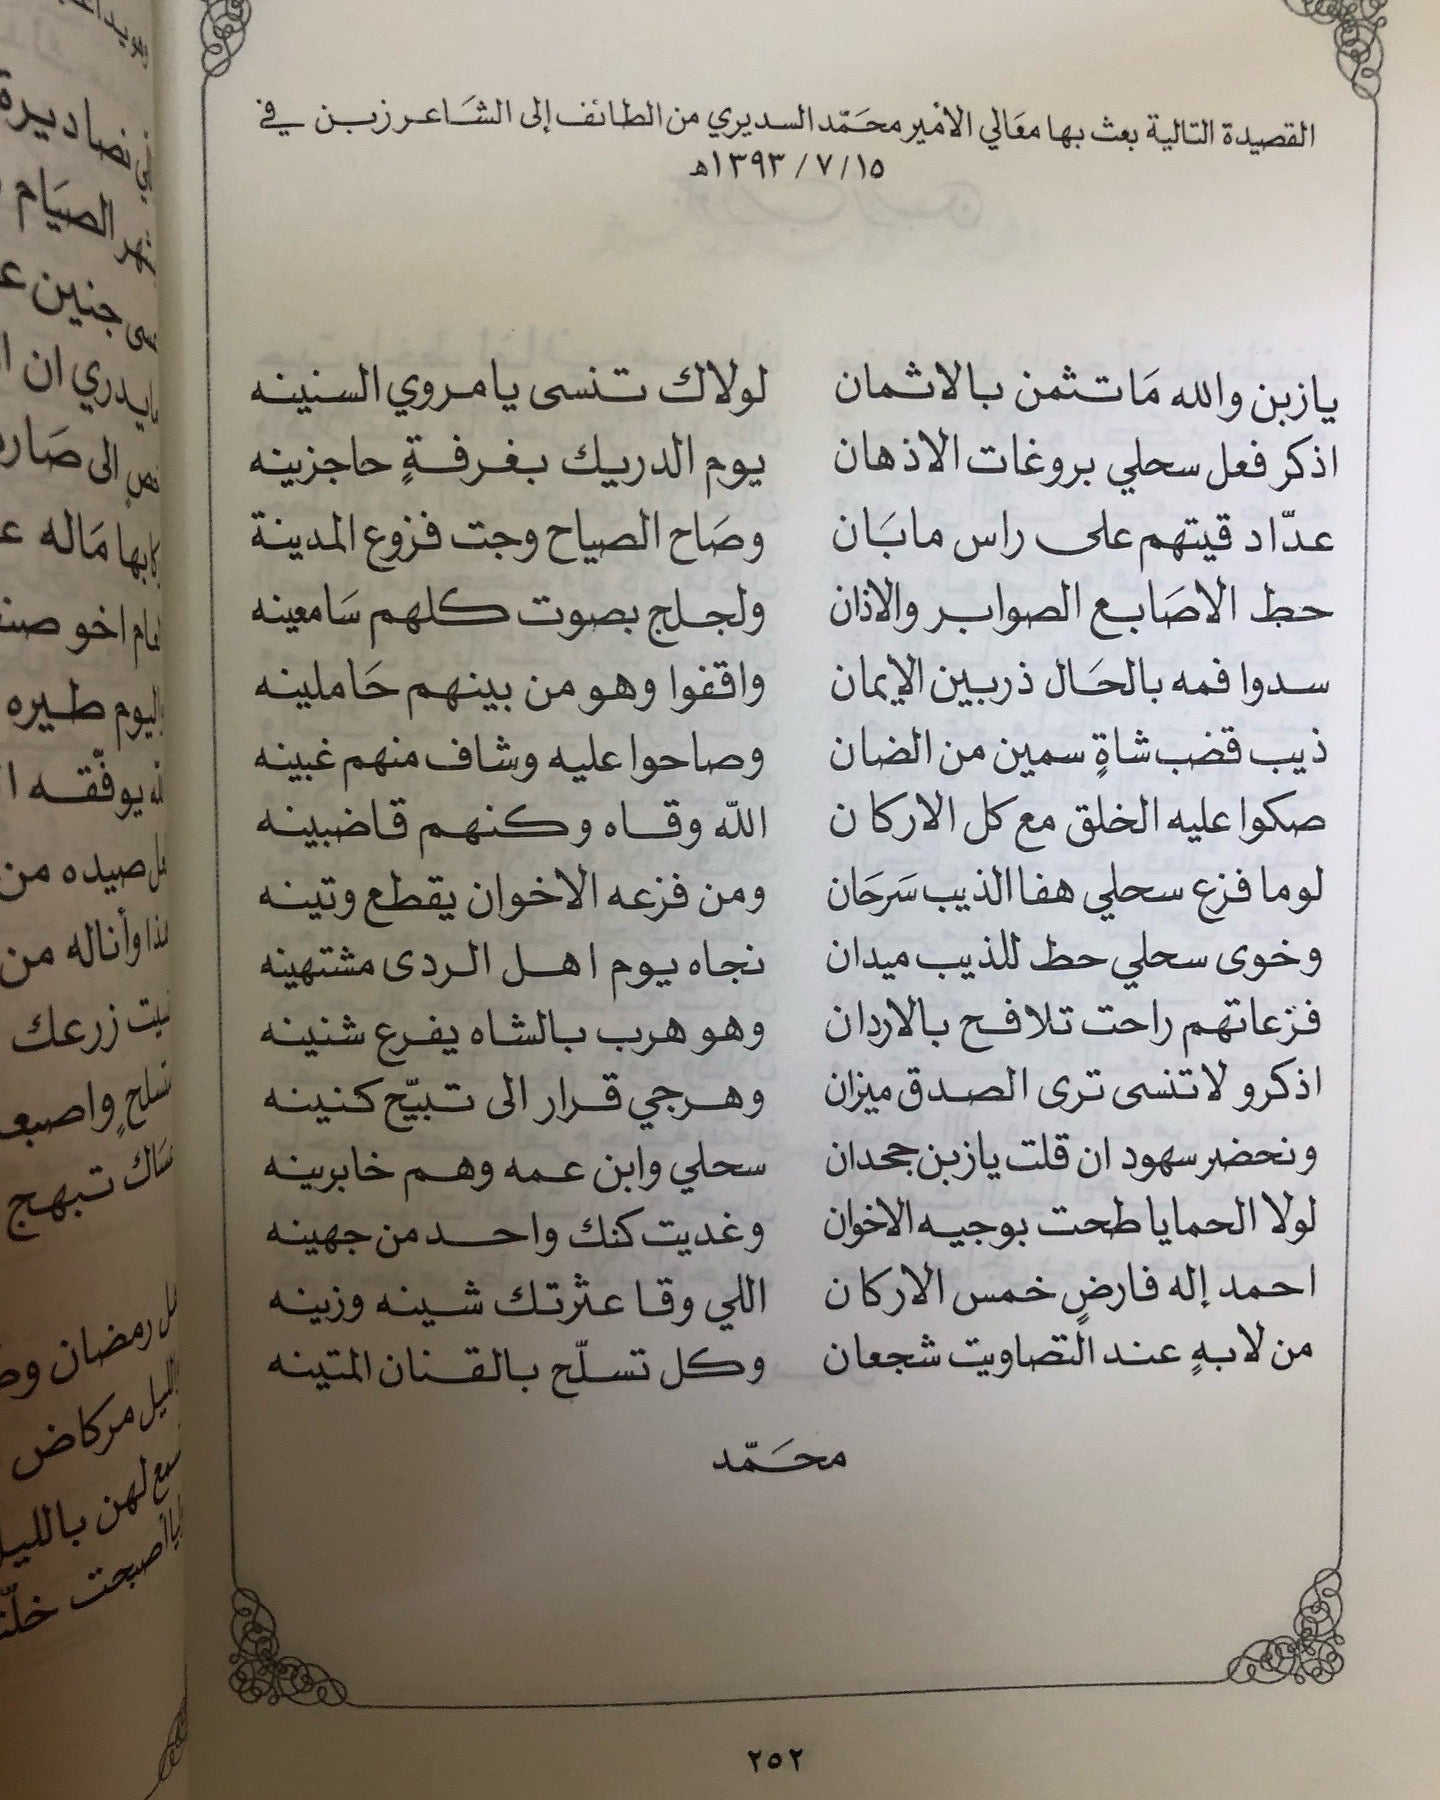 القصيدة التالية بعث بها معَالي الأمير محمّد السديري من الطائف إلى الشاعر زبن في
١٥ / ٧ / ١٣٩٣هـ
يا زبن والله مَا تثمن بالاثمان لولاك تنسى يا مروي السنينه
اذكر فعل سحلي بروغات الاذهان يوم الدريك بغرفةٍ حاجزينه
عدّاد قيتهم على راس مابَان وصَاح الصياح وجت فزوع المدينة
حط الاصَابع الصوابر والاذان ولجلج بصوت كلهم سَامعينه
سدوا فمه بالحَال ذربين الإيمان واقفوا وهو من بينهم حَاملينه
ذيب قضب شاةٍ سمين من الضان وصاحوا عليه وشاف منهم غبينه
صكوا عليه الخلق مع كل الاركان الله وقاه وكنهم قاضبينه
لوما فزع سحلي هفا الذيب سَرحَان ومن فزعه الاخوان يقطع وتينه
وخوى سحلي حط للذيب ميدان نجاه يوم اهل الردى مشتهينه
فزعاتهم راحت تلافح بالاردان وهو هرب بالشاه يفرع شنينه
اذكرو لا تنسى ترى الصدق ميزان وهرجي قرار الى تبيّح كنينه
ونحضر سهود ان قلت يا زبن جحدان سحلي وابن عمه وهم خابرينه
لولا الحمايا طحت بوجيه الاخوان وغديت كنك واحد من جهينه
احمد إله فارضٍ خمس الاركان اللي وقا عثرتك شينه وزينه
من لابهٍ عند التصاويت شجعان وكل تسلّح بالقنان المتينه
محَمّد
٢٥٢